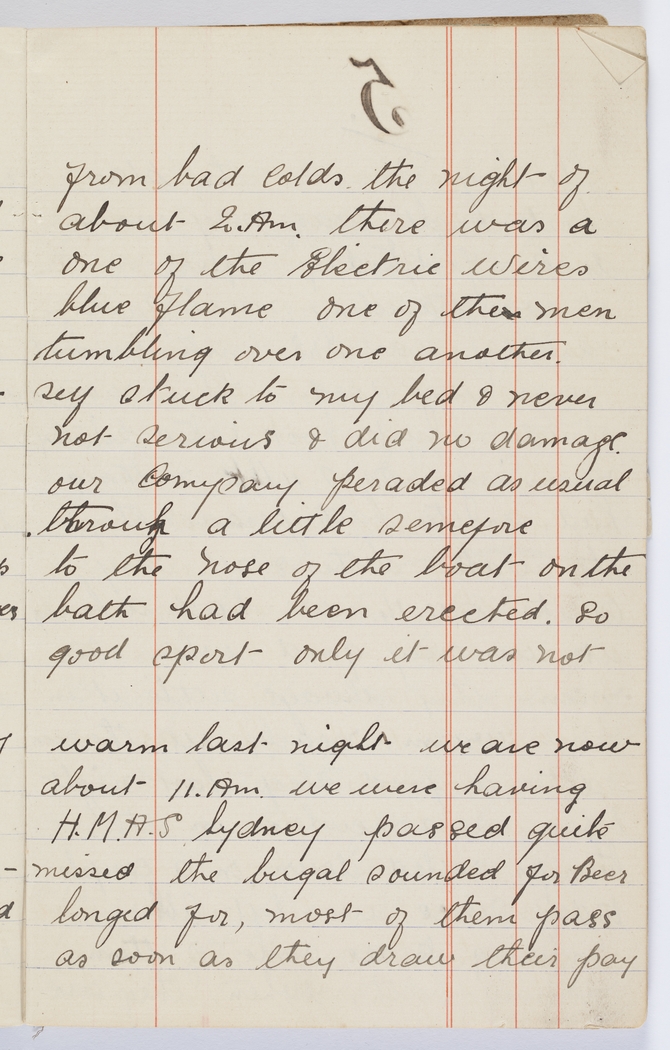 5
from bad colds. the night of
about 2.Am. there was a
one of the Electric wires
blue flame one of the men
tumbling over one another.
self stuck to my bed & never
not serious & did no damage.
our Company peraded as usual
through a little semefore
to the nose of the boat on the
bath had been erected. So
good sport only it was not
warm last night we are now
about 11.Am. we were having
H.M.A.S Sydney passed quite
missed the bugal sounded for Beer
longed for, most of them pass
as soon as they draw their pay